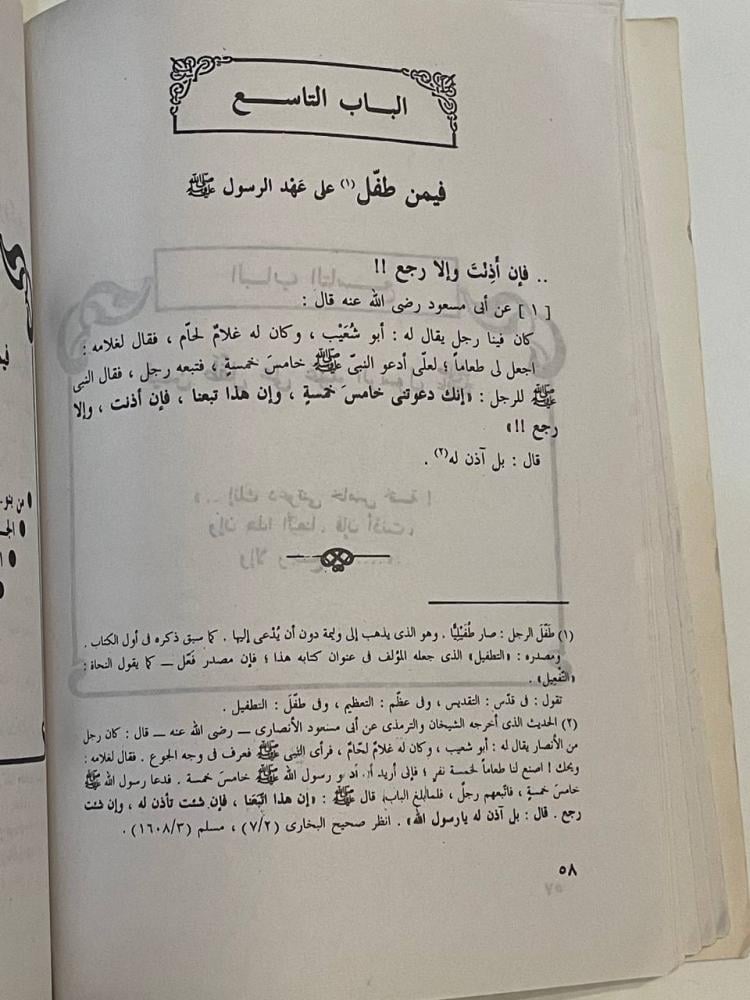 الباب التاسع
فيمن طفّل (١) على عَهْد الرسول ﷺ
.. فإن أَذِنْتَ وإلا رجع !!
[ ١ ] عن أبى مسعود رضى الله عنه قال :
كان فينا رجل يقال له : أبو شُعَيْب ، وكان له غلامٌ لحّام ، فقال لغلامه :
اجعل لى طعاماً ؛ لعلّى أدعو النبىّ ﷺ خامسَ خمسةٍ ، فتبعه رجل ، فقال النبى
ﷺ للرجل : «إنك دعوتنى خامسَ خمسةٍ ، وإن هذا تبعنا ، فإن أذنت ، وإلا
رجع !!»
قال : بل آذن له(٢) .
(١) طَفّلَ الرجل : صار طُفَيْلِيًّا . وهو الذى يذهب إلى وليمة دون أن يُدْعى إليها . كما سبق ذكره فى أول الكتاب .
ومصدره : «التطفيل» الذى جعله المؤلف فى عنوان كتابه هذا ؛ فإن مصدر فَعّل ــ كما يقول النحاة :
«التّفعِيل» .
تقول : فى قدّس : التقديس ، وفى عظّم : التعظيم ، وفى طفّلَ : التطفيل .
(٢) الحديث الذى أخرجه الشيخان والترمذى عن أبى مسعود الأنصارى ــ رضى الله عنه ــ قال : كان رجل
من الأنصار يقال له : أبو شعيب ، وكان له غلامٌ لحّامٌ ، فرأى النبى ﷺ فعرف فى وجهه الجوع . فقال لغلامه :
ويحك ! اصنع لنا طعاماً لخمسة نفرٍ ؛ فإنى أريد أن أدعو رسول الله ﷺ خامس خمسة . فدعا رسول الله ﷺ
خامسَ خمسةٍ ، فاتبعهم رجلٌ ، فلما بلغ الباب قال ﷺ : «إن هذا اتّبَعَنا ، فإن شئت تأذن له ، وإن شئت
رجع . قال : بل آذن له يا رسول الله» . انظر صحيح البخارى (٧/٢) ، مسلم (١٦٠٨/٣) .
٥٨